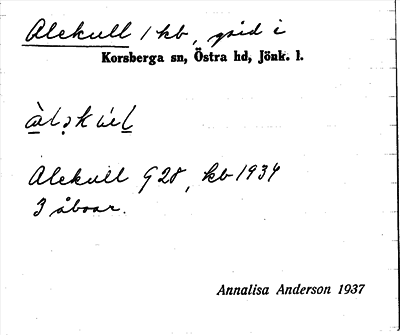 Alekull 1 kb, gård i
Korsberga sn, Östra hd, Jönk. l.
Alekull G28, kb 1934
3 åboar.
Annalisa Anderson 1937